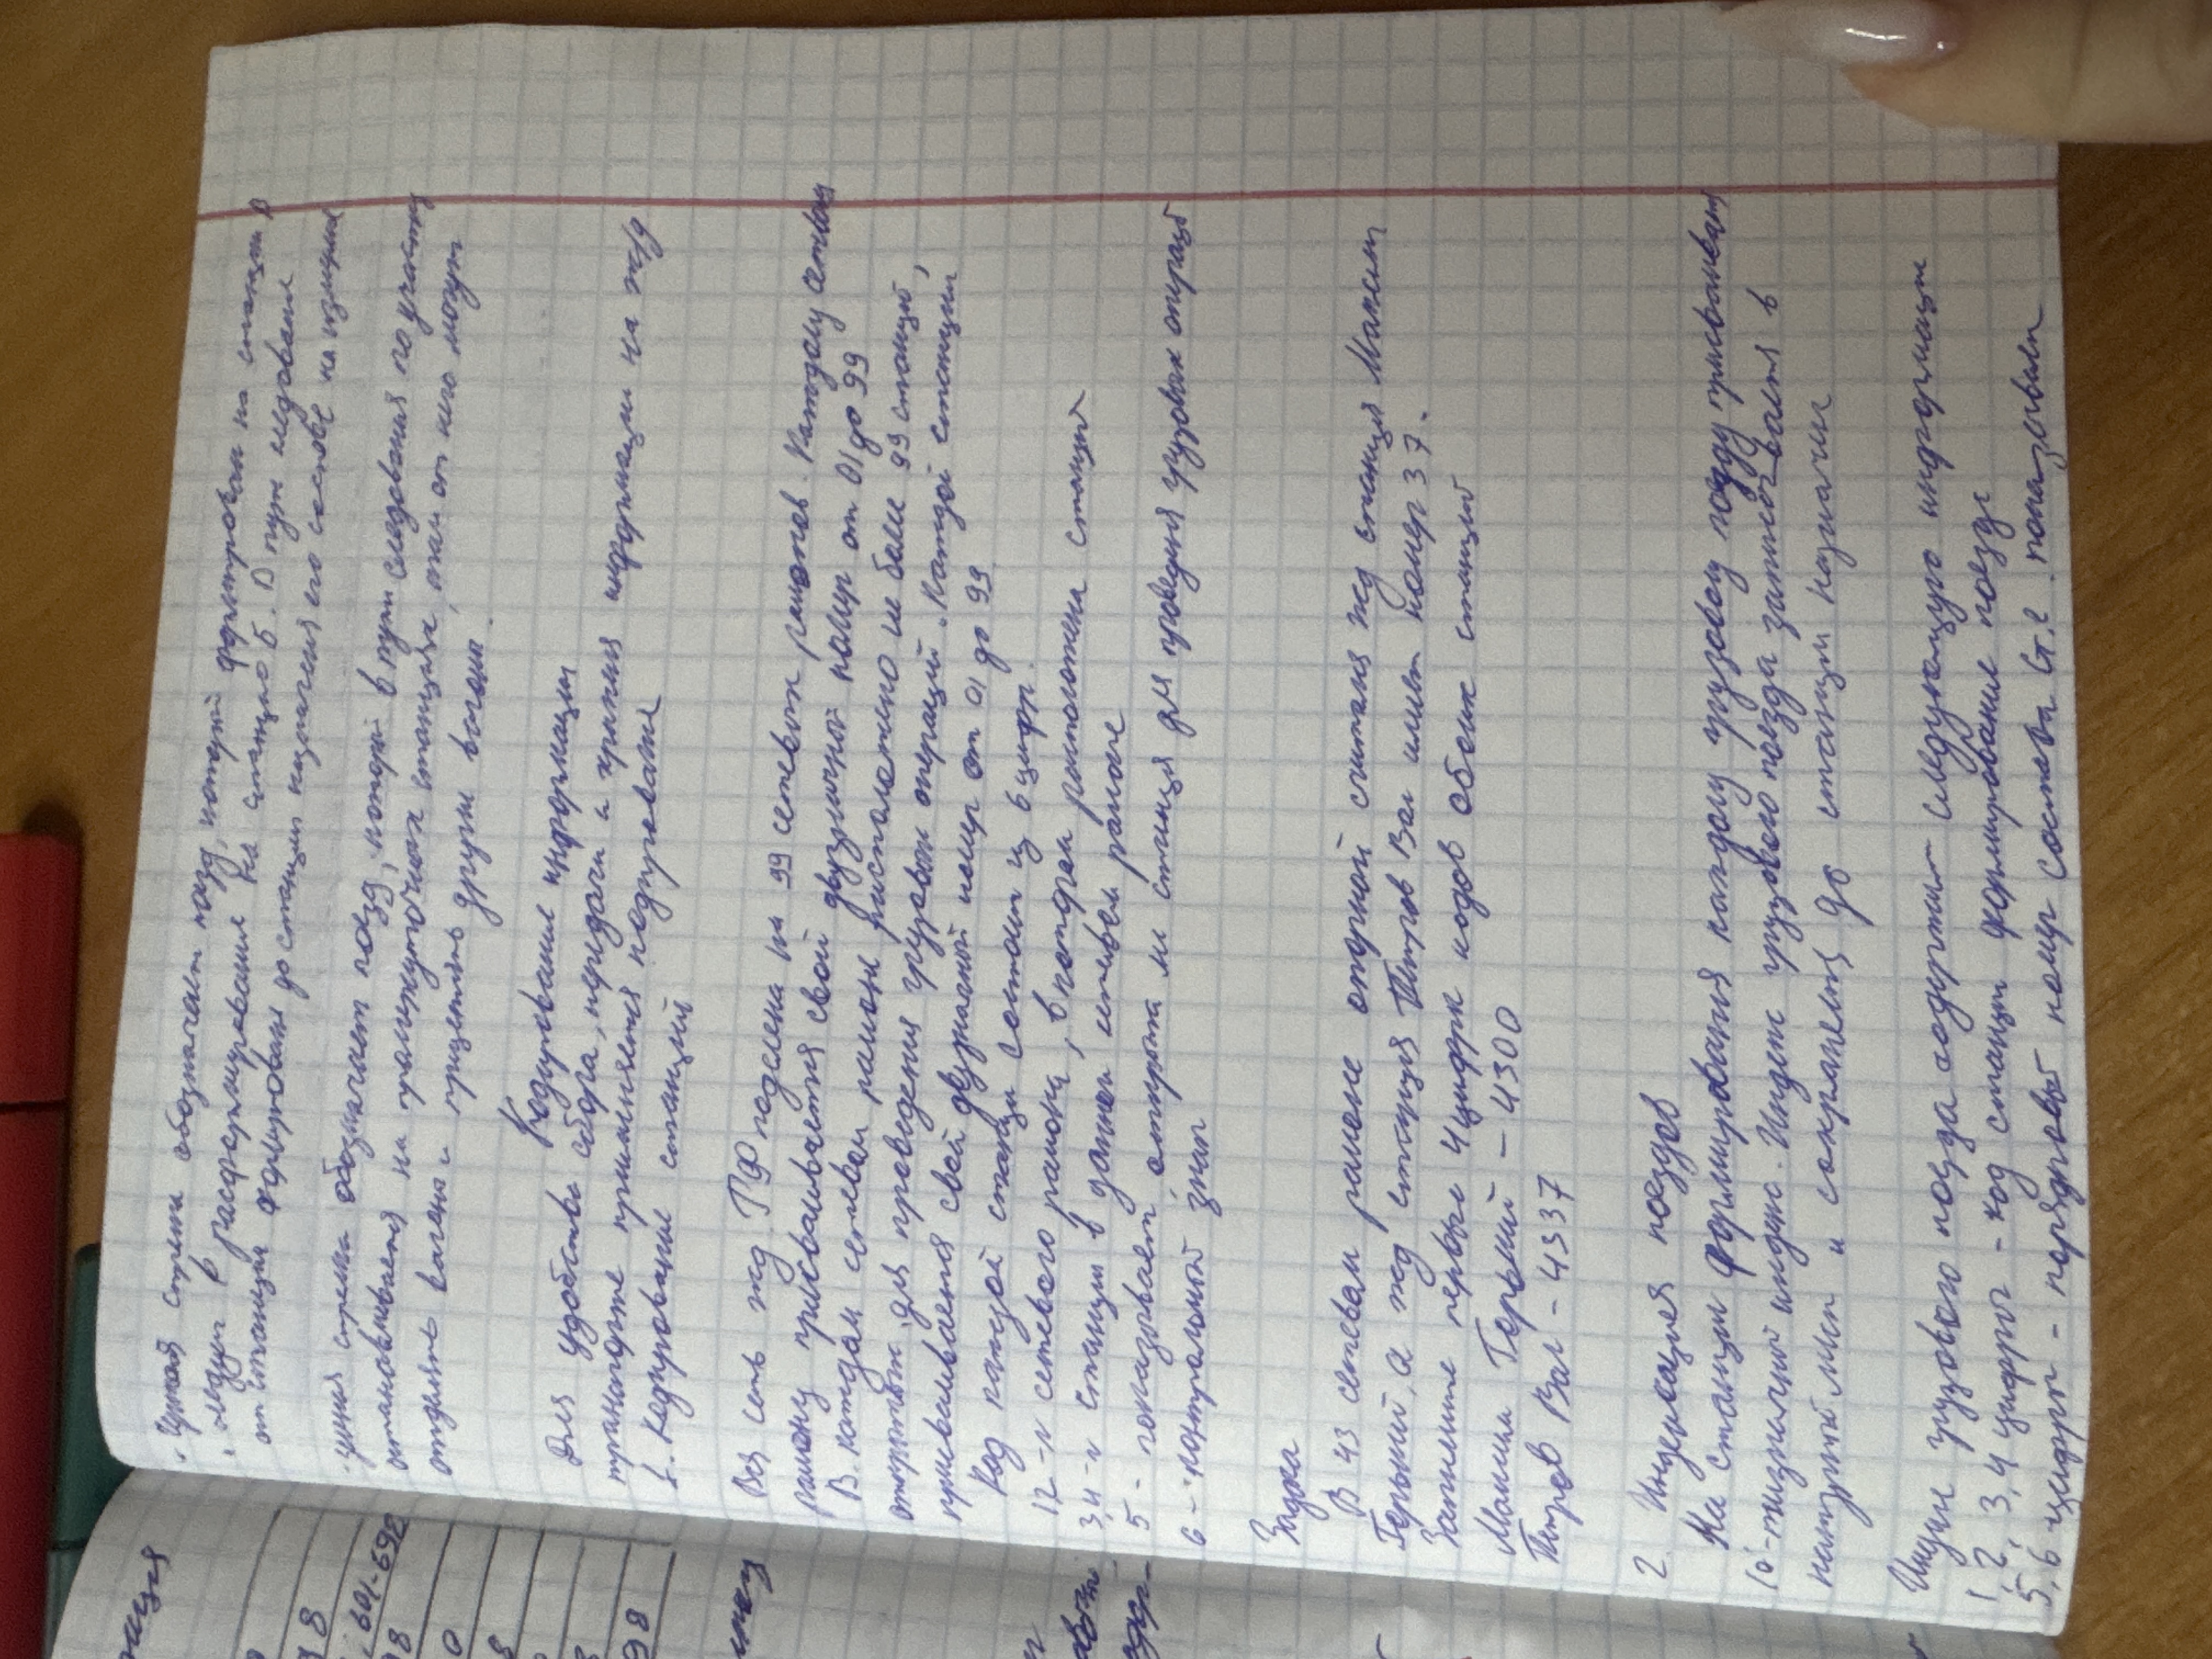 · Цугая стрелка обозначает поезд, который формирован на станции А
· следует в расформирование на станцию Б. В пути следования
от станции формирован до станции назначения его составе не измения
· чиния стрелка обозначает поезд, который в пути следования по участку
останавливается на промежуточных станциях, там от него могут
отцепить вагоны и прицепить другие вагоны.
Кодирование информации
Для удобства сбора, передачи и хранения информации на ж/д
транспорте применяется кодирование
1. Кодирование станций
Вся сеть жд РФ поделена на 99 сетевых районов. Каждому сетевому
району присваивается свой двузначной номер от 01 до 99
В каждом сетевом районе расположено не более 99 станций,
открытых для проведения грузовых операций. Каждой станции
присваивается свой двузначной номер от 01 до 99
Код каждой станци состоит из 6 цифр.
12 - № сетевого района, в котором расположена станция
3,4 - № станции в данном сетевом районе
5 - показывает открыта ли станция для проведения грузовых операций
6 - контрольный знак
Задача
В 43 сетевом районе опорной считается жд станция Максим
Горький, а жд станция Петров Вал имеет номер 37.
Запишите первые 4 цифры кодов обеих станций
Максим Горький - 4300
Петров Вал - 4337
2. Индексация поездов
На станции формирования каждому грузовому поезду присваивают
10-тизначный индекс. Индекс грузового поезда записывается в
натурный лист и сохраняется до станции назначения
Индекс грузового поезда содержит следующую информацию
1, 2, 3, 4 цифры - код станции формирование поезда
5, 6 цифры - порядковый номер состава (т.е. показывает